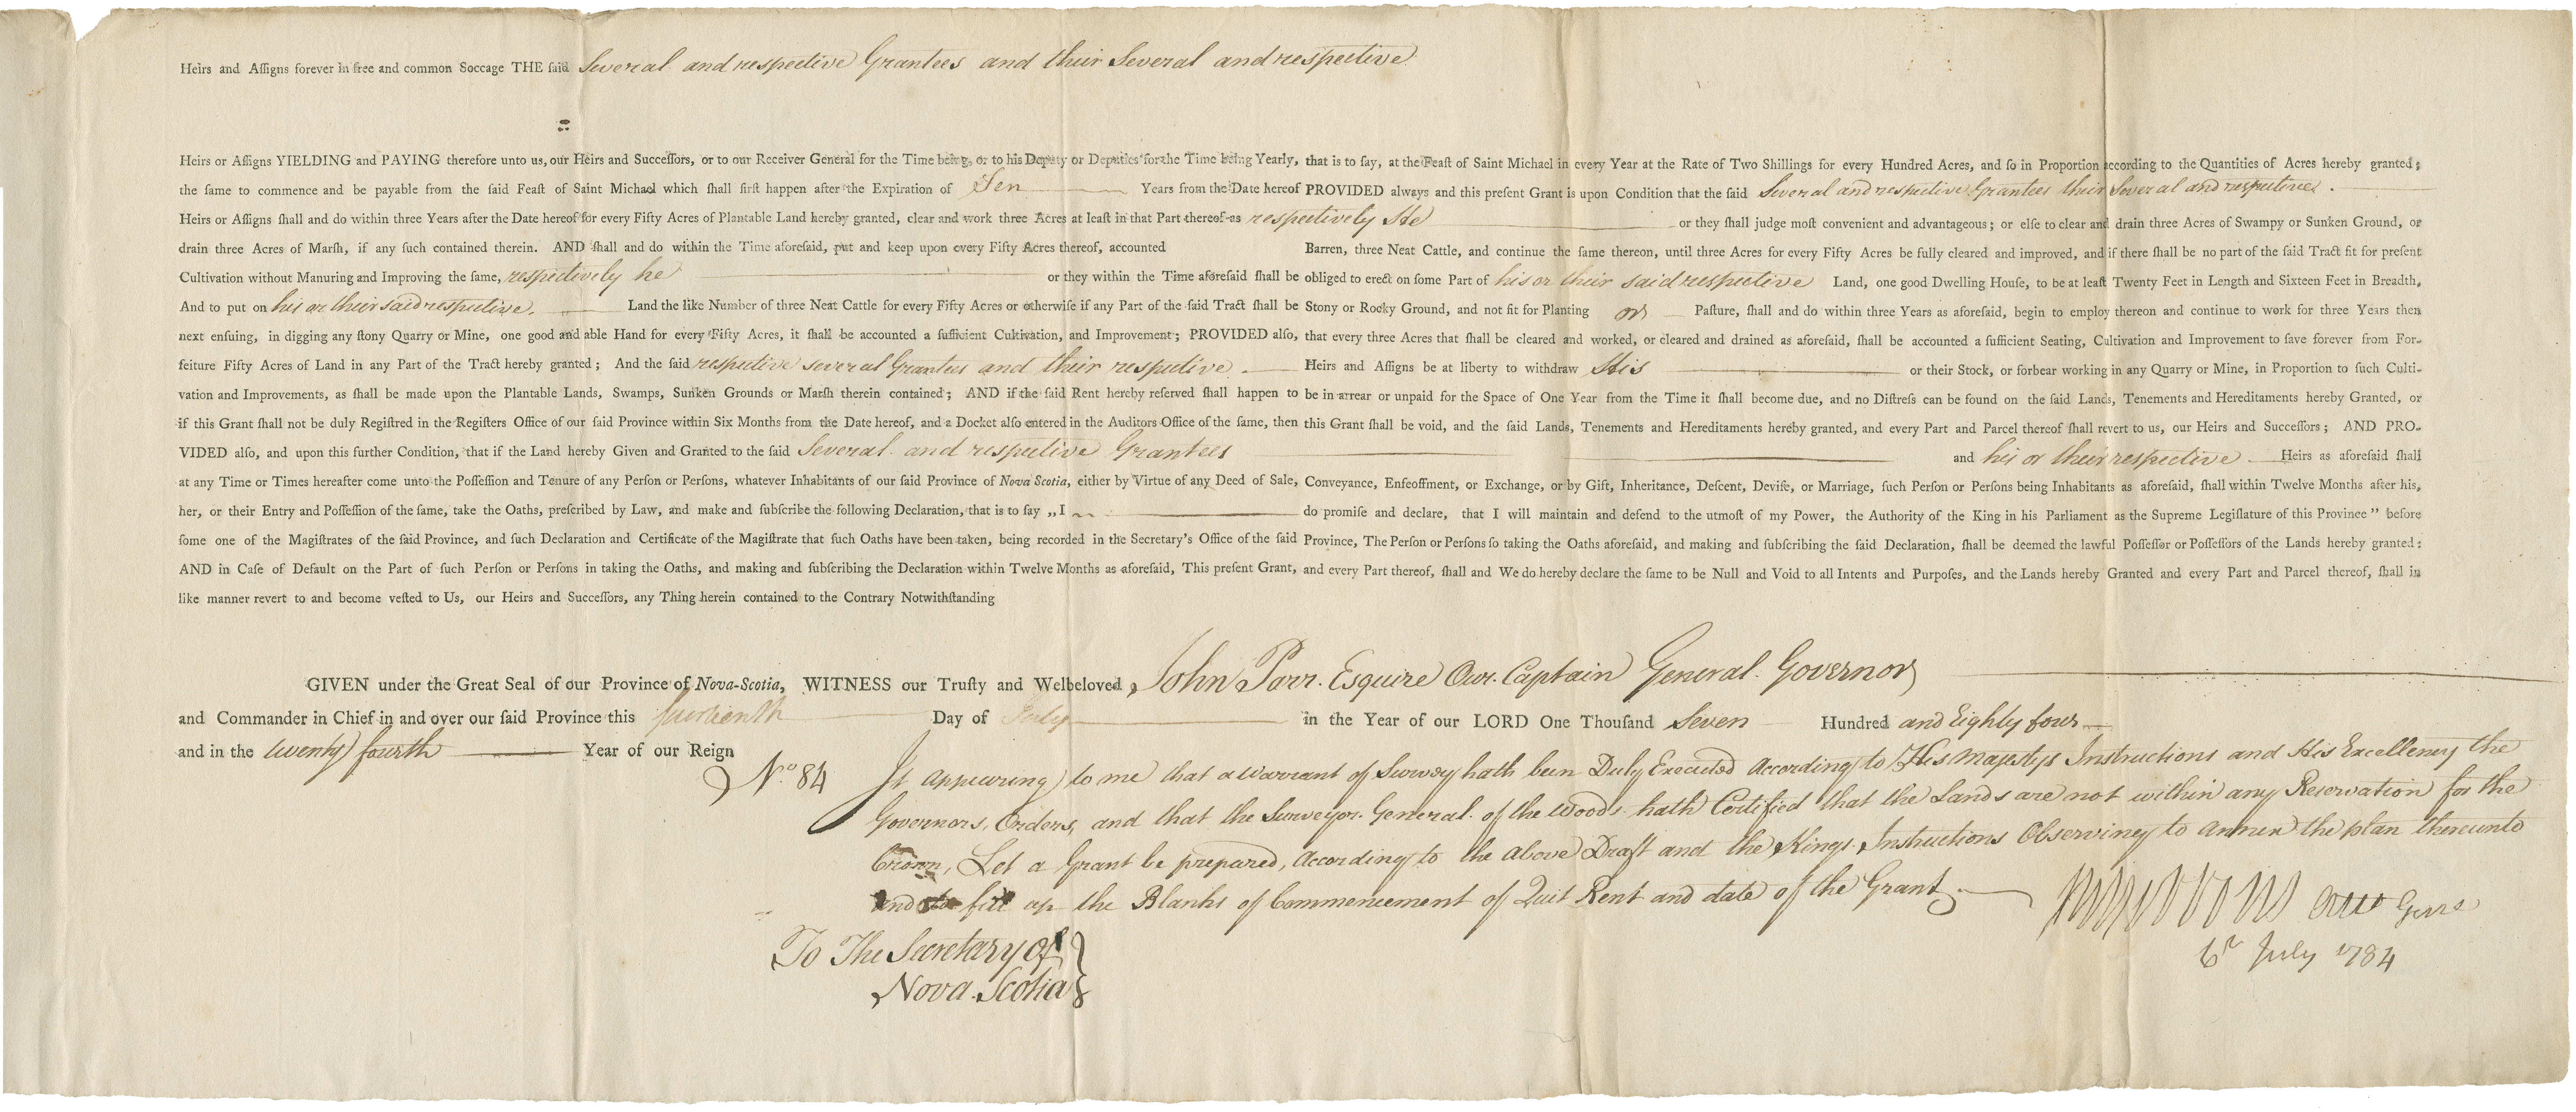 Heirs and Aſſigns forever in free and common Soccage THE ſaid Several and respective Grantees and their Several and respective
Heirs or Aſſigns YIELDING and PAYING therefore unto us, our Heirs and Succeſſors, or to our Receiver General for the Time being, or to his Deputy or Deputies for the Time being Yearly, that is to ſay, at the Feaſt of Saint Michael in every Year at the Rate of Two Shillings for every Hundred Acres, and ſo in Proportion according to the Quantities of Acres hereby granted;
the ſame to commence and be payable from the ſaid Feaſt of Saint Michael which ſhall firſt happen after the Expiration of Ten Years from the Date hereof PROVIDED always and this preſent Grant is upon Condition that the ſaid Several and respective Grantees their Several and respective
Heirs or Aſſigns ſhall and do within three Years after the Date hereof for every Fifty Acres of Plantable Land hereby granted, clear and work three Acres at leaſt in that Part thereof as respectively He or they ſhall judge moſt convenient and advantageous; or elſe to clear and drain three Acres of Swampy or Sunken Ground, or
drain three Acres of Marſh, if any ſuch contained therein. AND ſhall and do within the Time aforeſaid, put and keep upon every Fifty Acres thereof, accounted Barren, three Neat Cattle, and continue the ſame thereon, until three Acres for every Fifty Acres be fully cleared and improved, and if there ſhall be no part of the ſaid Tract fit for preſent
Cultivation without Manuring and Improving the ſame, respectively he or they within the Time aforeſaid ſhall be obliged to erect on ſome Part of his or their said respective Land, one good Dwelling Houſe, to be at leaſt Twenty Feet in Length and Sixteen Feet in Breadth,
And to put on his or their said respective Land the like Number of three Neat Cattle for every Fifty Acres or otherwiſe if any Part of the ſaid Tract ſhall be Stony or Rocky Ground, and not fit for Planting or Paſture, ſhall and do within three Years as aforeſaid, begin to employ thereon and continue to work for three Years then
next enſuing, in digging any ſtony Quarry or Mine, one good and able Hand for every Fifty Acres, it ſhall be accounted a ſufficient Cultivation, and Improvement; PROVIDED alſo, that every three Acres that ſhall be cleared and worked, or cleared and drained as aforeſaid, ſhall be accounted a ſufficient Seating, Cultivation and Improvement to ſave forever from For-
feiture Fifty Acres of Land in any Part of the Tract hereby granted; And the ſaid respective several Grantees and their respective Heirs and Aſſigns be at liberty to withdraw His or their Stock, or forbear working in any Quarry or Mine, in Proportion to ſuch Culti-
vation and Improvements, as ſhall be made upon the Plantable Lands, Swamps, Sunken Grounds or Marſh therein contained; AND if the ſaid Rent hereby reſerved ſhall happen to be in arrear or unpaid for the Space of One Year from the Time it ſhall become due, and no Diſtreſs can be found on the ſaid Lands, Tenements and Hereditaments hereby Granted, or
if this Grant ſhall not be duly Regiſtred in the Regiſters Office of our ſaid Province within Six Months from the Date hereof, and a Docket alſo entered in the Auditors Office of the ſame, then this Grant ſhall be void, and the ſaid Lands, Tenements and Hereditaments hereby granted, and every Part and Parcel thereof ſhall revert to us, our Heirs and Succeſſors; AND PRO-
VIDED alſo, and upon this further Condition, that if the Land hereby Given and Granted to the ſaid Several and respective Grantees and his or their respective Heirs as aforeſaid ſhall
at any Time or Times hereafter come unto the Poſſeſſion and Tenure of any Perſon or Perſons, whatever Inhabitants of our ſaid Province of Nova Scotia, either by Virtue of any Deed of Sale, Conveyance, Enfeoffment, or Exchange, or by Gift, Inheritance, Deſcent, Deviſe, or Marriage, ſuch Perſon or Perſons being Inhabitants as aforeſaid, ſhall within Twelve Months after his,
her, or their Entry and Poſſeſſion of the ſame, take the Oaths, preſcribed by Law, and make and ſubſcribe the following Declaration, that is to ſay „I do promiſe and declare, that I will maintain and defend to the utmoſt of my Power, the Authority of the King in his Parliament as the Supreme Legiſlature of this Province” before
ſome one of the Magiſtrates of the ſaid Province, and ſuch Declaration and Certificate of the Magiſtrate that ſuch Oaths have been taken, being recorded in the Secretary's Office of the ſaid Province, The Perſon or Perſons ſo taking the Oaths aforeſaid, and making and ſubſcribing the ſaid Declaration, ſhall be deemed the lawful Poſſeſſor or Poſſeſſors of the Lands hereby granted:
AND in Caſe of Default on the Part of ſuch Perſon or Perſons in taking the Oaths, and making and ſubſcribing the Declaration within Twelve Months as aforeſaid, This preſent Grant, and every Part thereof, ſhall and We do hereby declare the ſame to be Null and Void to all Intents and Purpoſes, and the Lands hereby Granted and every Part and Parcel thereof, ſhall in
like manner revert to and become veſted to Us, our Heirs and Succeſſors, any Thing herein contained to the Contrary Notwithſtanding
GIVEN under the Great Seal of our Province of Nova-Scotia, WITNESS our Truſty and Welbeloved, John Parr. Esquire Our Captain General Governor
and Commander in Chief in and over our ſaid Province this fourteenth Day of July in the Year of our LORD One Thouſand Seven Hundred and Eighty four
and in the twenty fourth Year of our Reign
No. 84 It appearing to me that a warrant of Survey hath been Duly Executed According to His Majestys Instructions and His Excellency the
Governors, Orders, and that the Surveyor General of the Woods hath Certified that the Lands are not within any Reservation for the
Crown, Let a Grant be prepared, According to the above Draft and the Kings Instructions Observing to annex the plan thereunto
and to fill up the Blanks of Commencement of Quit Rent and date of the Grant
6th July 1784
To The Secretary of
Nova Scotia